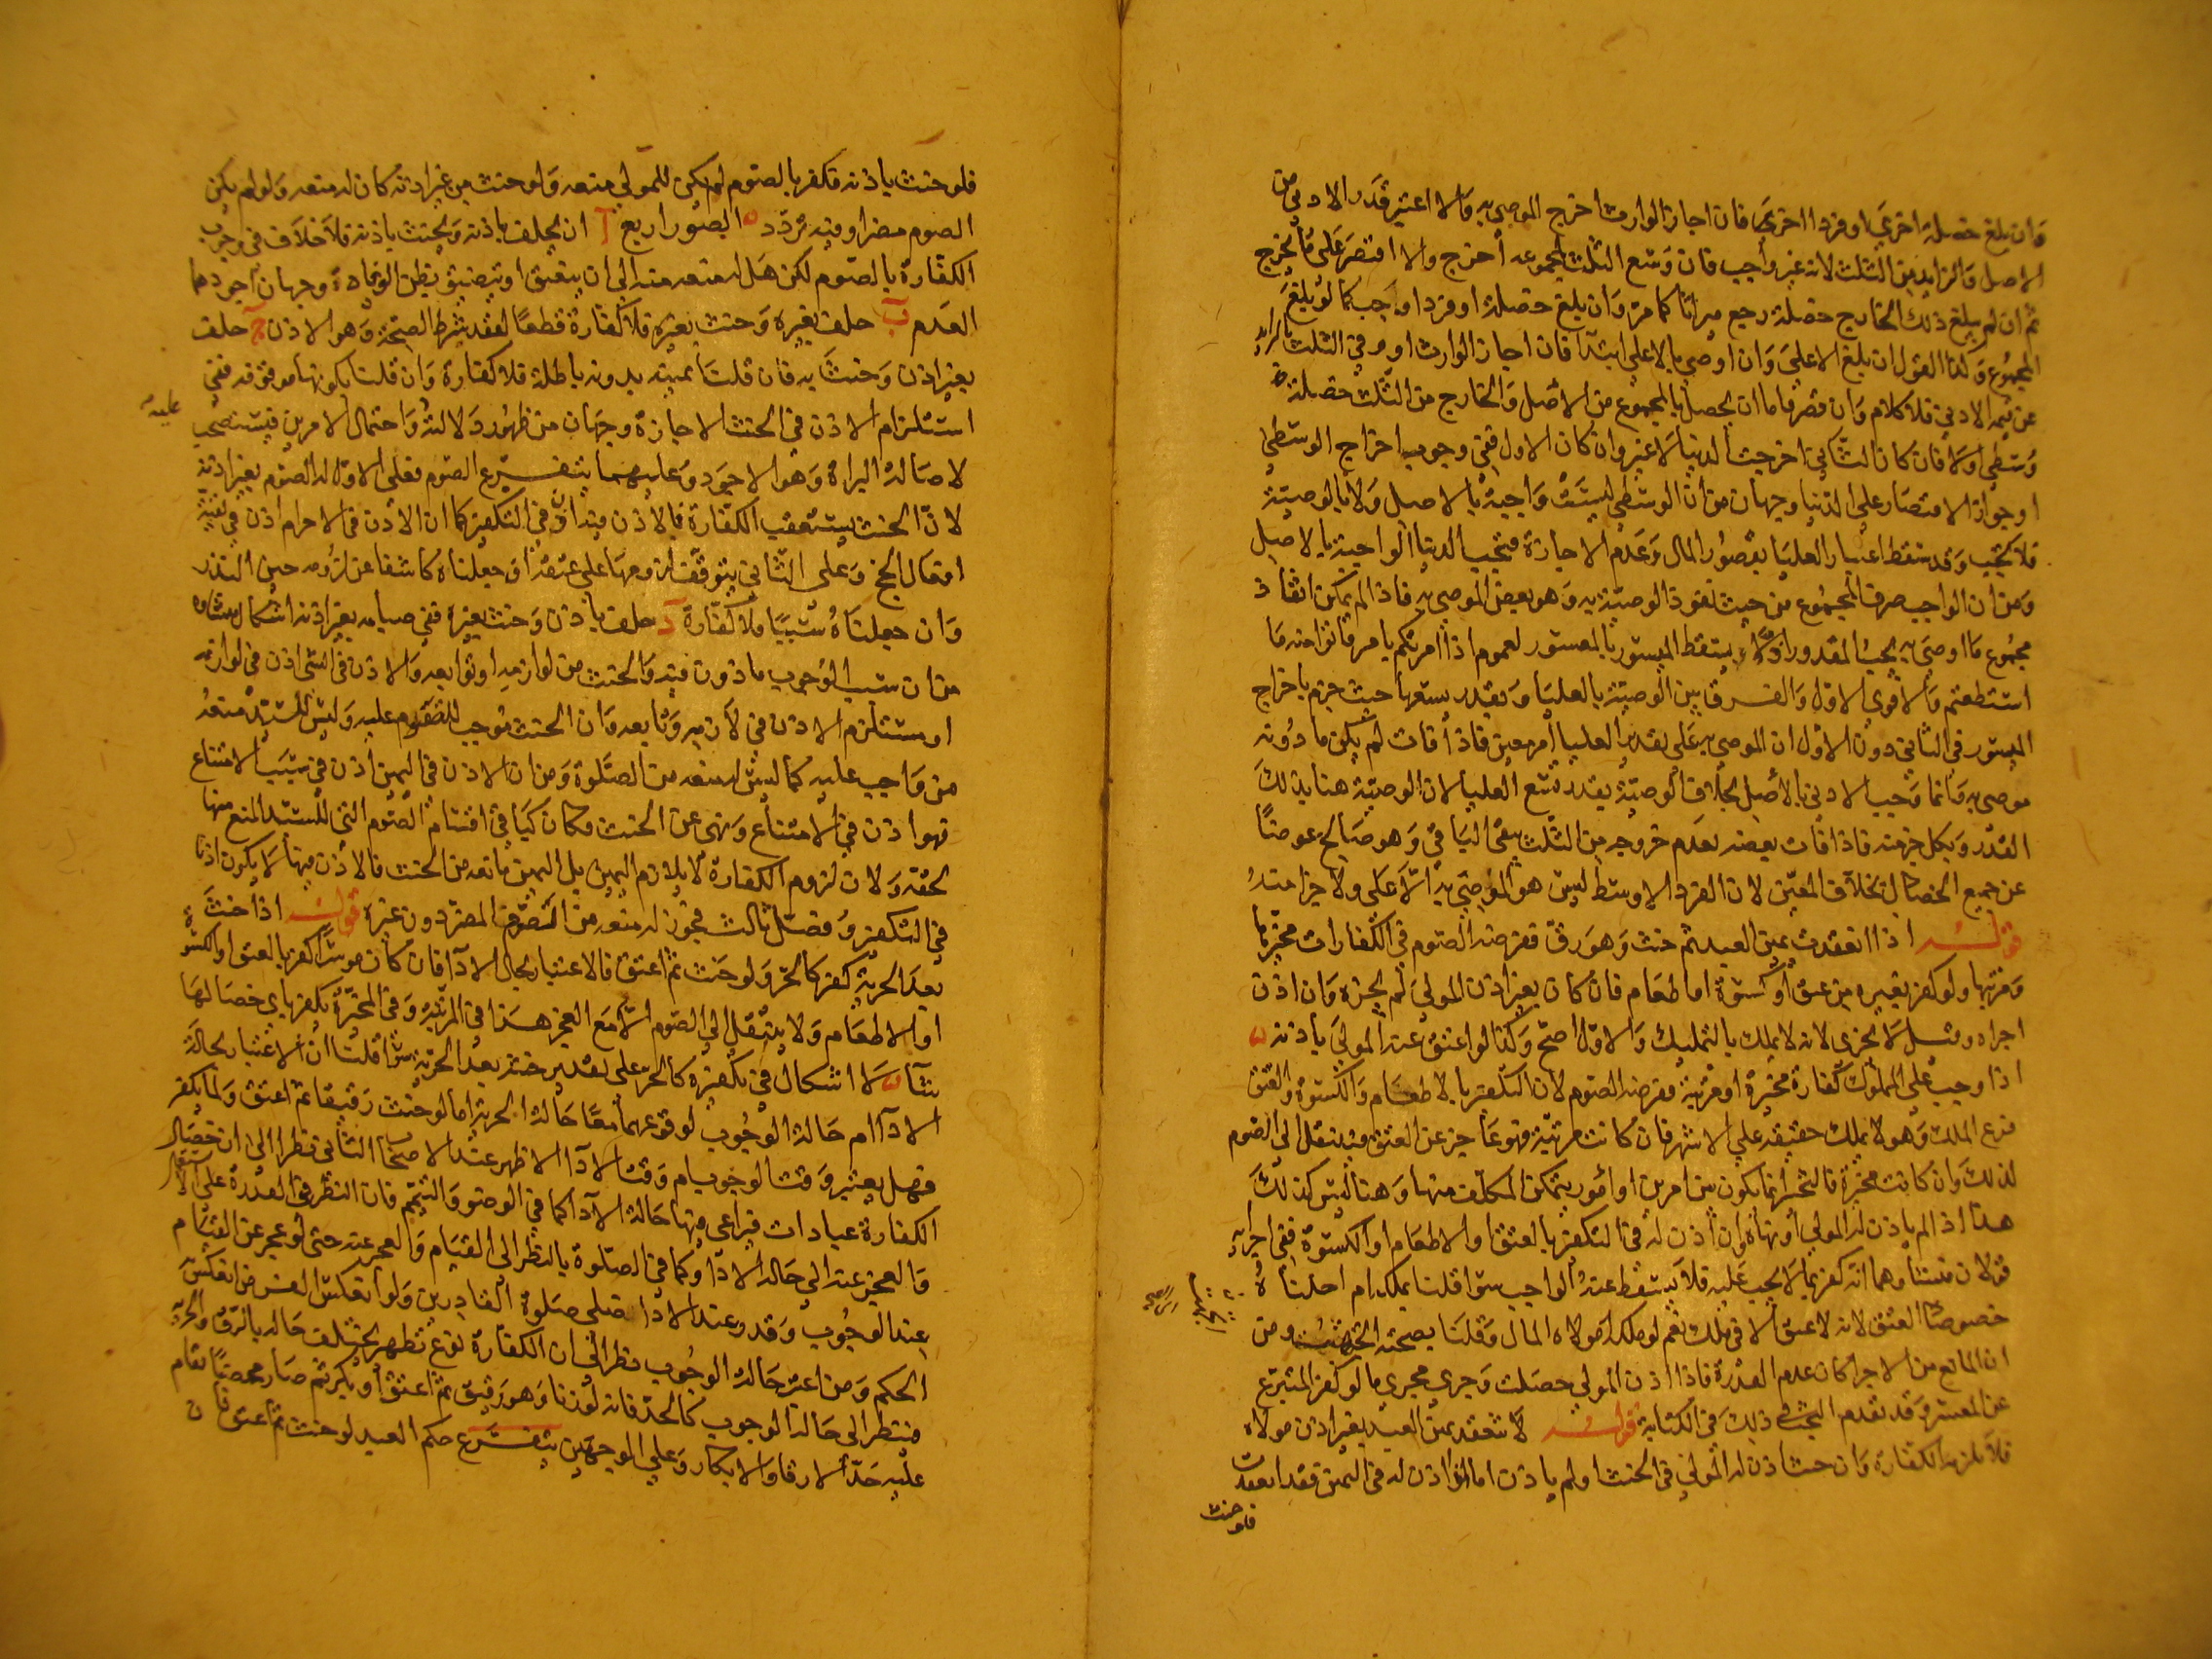 وان بلغ خصلة اخرى او فردا اخرى فان اجاز الوارث اخرج الموصى به والا اعتبر قدر الادنى من
الاصل والزايد من الثلث لانه غير واجب فان وسع الثلث لمجموعه اخرج والا اقتصر على ما يخرج
ثم ان لم يبلغ ذلك الخارج خصلة رجع ميراثا كما مر وان بلغ خصلة او فردا وجب كما لو بلغ
المجموع وكذا القول ان بلغ الاعلى وان اوصى بالاعلى ابتدا فان اجاز الوارث او وفى الثلث بالزايد
عن قيمة الادنى فلا كلام وان قصر فاما ان يحصل بالمجموع من الاصل والخارج من الثلث خصلة
وسطى اولا فان كان الثاني اخرجت الدنيا لا غير وان كان الاول ففي وجوب اخراج الوسطى
او جواز الاقتصار على الدنيا وجهان من ان الوسطى ليست واجبة بالاصل ولا بالوصية
فلا تجب وقد سقط اعتبار العليا بقصور المال وعدم الاجازة فتجب الدنيا الواجبة بالاصل
ومن ان الواجب صرف المجموع من حيث نفوذ الوصية به وهو بعض الموصى به فاذا لم يمكن انفاذ
مجموع ما اوصى به يجب المقدور اذ لا يسقط الميسور بالمعسور لعموم اذا امرتكم بامر فاتوا منه ما
استطعتم والاقوى الاول والفرق بين الوصية بالعليا وبقدر يسعها حيث جزم باخراج
الميسور في الثاني دون الاول ان الموصى به على تقدير العليا امر معين فاذا فات لم يكن ما دونه
موصى به وانما وجب الادنى بالاصل بخلاف الوصية بقدر تسع العليا لان الوصية هنا بذلك
القدر وبكل جزء منه فاذا فات بعضه بعدم خروجه من الثلث يبقى الباقي وهو صالح عوضا
عن جميع الخصال بخلاف المعين لان الفرد الاوسط ليس هو الموصى به الاعلى ولا جزا منه
قوله اذا انعقدت يمين العبد ثم حنث وهو رق ففرضه الصوم في الكفارات مخيرها
ومرتبها ولو كفر بغيره من عتق او كسوة او اطعام فان كان بغير اذن المولى لم يجزه وان اذن
اجزاه وقيل لا يجزى لانه لا يملك بالتمليك والاول اصح وكذا لو اعتق عنه المولى باذنه
اذا وجب على المملوك كفارة مخيرة او مرتبة ففرضه الصوم لان التكفير بالاطعام والكسوة والعتق
فرع الملك وهو لا يملك حقيقة على الاشهر فان كانت مرتبة فهو عاجز عن العتق فينتقل الى الصوم
لذلك وان كانت مخيرة فالتخير انما يكون بين امرين او امور يتمكن المكلف منها وهنا ليس كذلك
هذا اذا لم ياذن له المولى او نهاه وان اذن له في التكفير بالعتق والاطعام او الكسوة ففي اجزاءه
قولان منشاوهما انه كفر بما لا يجب عليه فلا يسقط عنه الواجب سوا قلنا يملك ام احلنا
خصوصا العتق لانه لا عتق الا في ملك نعم لو ملكه مولاه المال وقلنا بصحته اتجه ومن
ان المانع من الاجزا كان عدم القدرة فاذا اذن المولى حصلت وجرى مجرى ما لو كفر المتبرع
عن المعسر وقد تقدم البحث في ذلك في الكتابة قوله لا تنعقد يمين العبد بغير اذن مولاه
فلا تلزمه الكفارة وان حنث اذن له المولى في الحنث او لم ياذن اما اذا اذن له في اليمين فقد انعقدت
فلو حنث
فلو حنث باذنه فكفر بالصوم لم يكن للمولى منعه ولو حنث من غير اذنه كان له منعه ولو لم يكن
الصوم مضرا وفيه تردد الصور اربع آ ان يحلف باذنه ويحنث باذنه فلا خلاف في وجوب
الكفارة بالصوم لكن هل له منعه منه الى ان يتعتق او يتضيق بظن الوفاة وجهان اجودهما
العدم ب حلف بغيره وحنث بغيره فلا كفارة قطعا لفقد شرط الصحة وهو الاذن ج حلف
بغير اذن وحنث به فان قلنا يمينه بدونه باطلة فلا كفارة وان قلنا بكونها موقوفة ففي
استلزام الاذن في الحنث الاجازة وجهان من ظهور دلالته واحتمال الامرين فيستصحب
لاصالة البراة وهو الاجود وعليهما يتفرع الصوم فعلى الاول له الصوم بغير اذنه
لان الحنث يستعقب الكفارة فالاذن فيه اذن في التكفير كما ان الاذن في الاحرام اذن في بقية
افعال الحج وعلى الثاني يتوقف لزومها على عتقه ان جعلناه كاشفا عن لزومه حين النذر
وان جعلناه سببيا فلا كفارة د حلف باذن وحنث بغيره ففي صيامه بغير اذنه اشكال منشاوه
من ان سبب الوجوب ماذون فيه والحنث من لوازمه او توابعه والاذن في الشي اذن في لوازمه
او مستلزم الاذن في لازمه وتابعه وان الحنث موجب للصوم عليه وليس للسيد منعه
من واجب عليه كما ليس له منعه من الصلوة ومن ان الاذن في اليمين اذن في سبب الامتناع
فهو اذن في الامتناع ونهى عن الحنث فكان كباقي اقسام الصوم التي للسيد المنع منها
لحقه ولان لزوم الكفارة لا يلازم اليمين بل اليمين مانعه من الحنث فالاذن فيها لا يكون اذنا
في التكفير وفصل ثالث فجوز له منعه من الصوم المضر دون غيره قوله اذا حنث
بعد الحرية كفر كالحر ولو حنث ثم اعتق فالاعتبار بحال الادآ فان كان موسرا كفر بالعتق او الكسوة
او الاطعام ولا ينتقل الى الصوم الا مع العجز هذا في المرتبة وفي المخيرة يكفر باي خصالها
شآ لا اشكال في تكفيره كالحر على تقدير حنثه بعد الحرية سوا قلنا ان الاعتبار بحالة
الادآ ام حالة الوجوب لوقوعهما معا حالة الحرية اما لو حنث رقيقا ثم اعتق ولما يكفر
فهل يعتبر وقت الوجوب ام وقت الادآ الاظهر عند الاصحاب الثاني نظرا الى ان خصال
الكفارة عبادات فيراعى فيها حالة الادآ كما في الوضو والتيمم فان النظر في القدرة على الما
والعجز عنه الى حالة الادآ وكما في الصلوة بالنظر الى القيام والعجز عنه حتى لو عجز عن القيام
عند الوجوب وقدر عند الادا صلى صلوة القادرين ولو انعكس الفرض انعكس
الحكم ومن اعتبر حالة الوجوب نظر الى ان الكفارة نوع تطهير يختلف حاله بالرق والحرية
فينظر الى حالة الوجوب كالحد فانه لو زنا وهو رقيق ثم اعتق او بكر ثم صار محصنا يقام
عليه حد الارقا والابكار وعلى الوجهين يتفرع حكم العبد لو حنث ثم اعتق فان